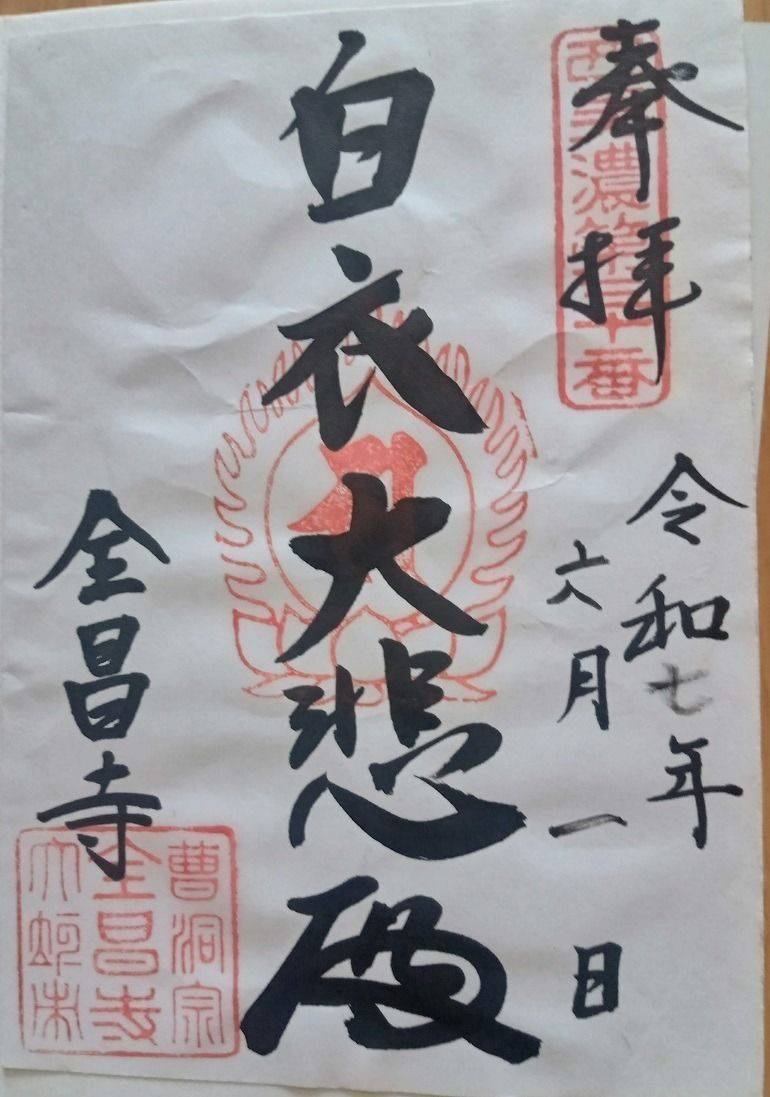 奉拝
西美濃第三十番
令和七年
六月一日
白衣大悲殿
全昌寺
曹洞宗
全昌寺